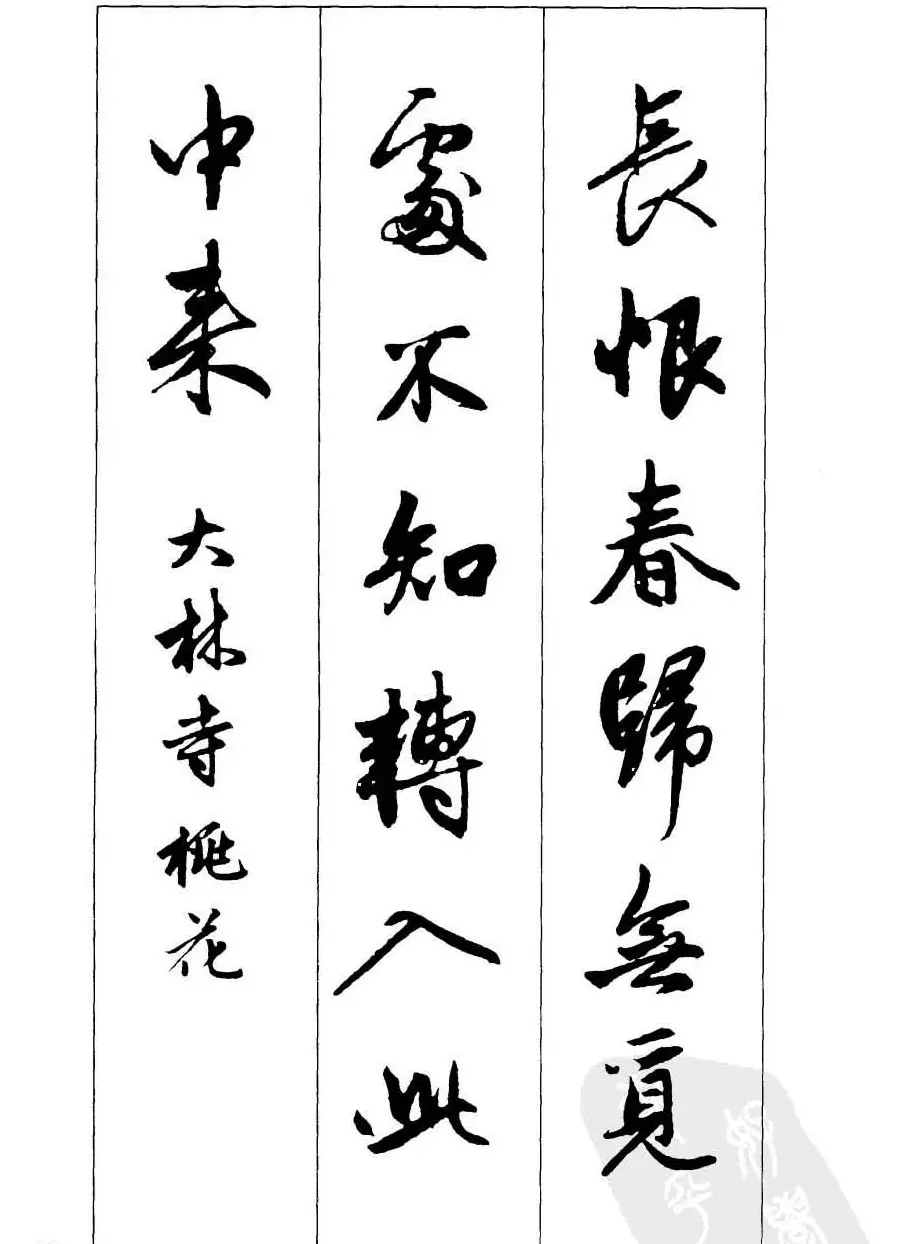 長恨春歸無覓
處不知轉入此
中来
大林寺桃花